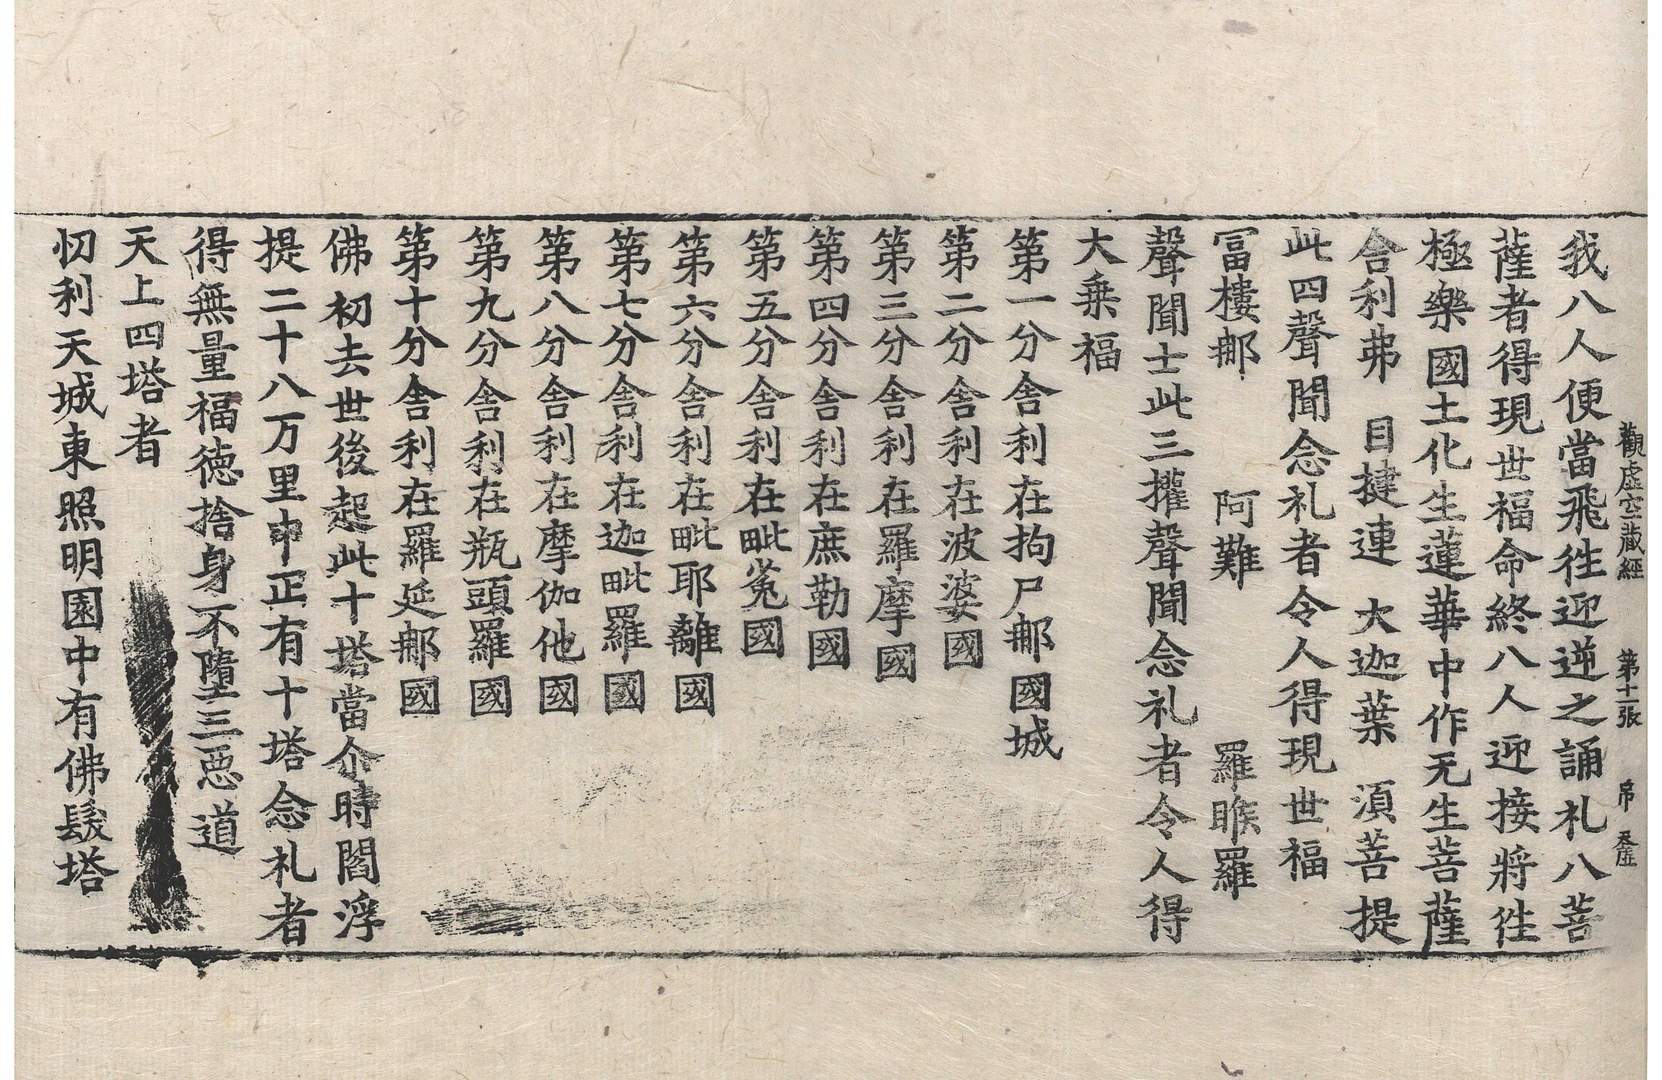 觀虛空藏經　第十二張　帛　虛
我八人便當飛徃迎逆之誦礼八菩
薩者得現世福命終八人迎接將徃
極樂國土化生蓮華中作无生菩薩
舍利弗　目揵連　大迦葉　湏菩提
此四聲聞念礼者令人得現世福
冨樓郍　阿難　羅睺羅
聲聞士此三攉聲聞念礼者令人得
大乗福
第一分舍利在拘尸郍國城
第二分舍利在波婆國
第三分舍利在羅摩國
第四分舍利在庶勒國
第五分舍利在毗㝹國
第六分舍利在毗耶離國
第七分舍利在迦毗羅國
第八分舍利在摩伽他國
第九分舍利在瓶頭羅國
第十分舍利在羅延郍國
佛初去世後起此十塔當尒時閻浮
提二十八万里中正有十塔念礼者
得無量福德捨身不墮三惡道
天上四塔者
忉利天城東照明園中有佛髮塔